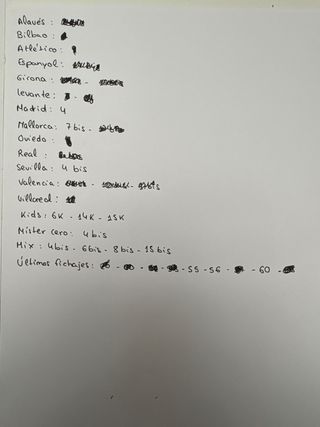 Alavés :
Bilbao :
Atlético :
Espanyol :
Girona : -
Levante : -
Madrid : 4
Mallorca : 7 bis -
Oviedo :
Real :
Sevilla : 4 bis
Valencia : - -
Villarreal :
Kids : 6K - 14K - 15K
Míster cero : 4 bis
Mix : 4 bis - 6 bis - 8 bis - 15 bis
Últimos fichajes : - - - - 55 - 56 - - 60 -